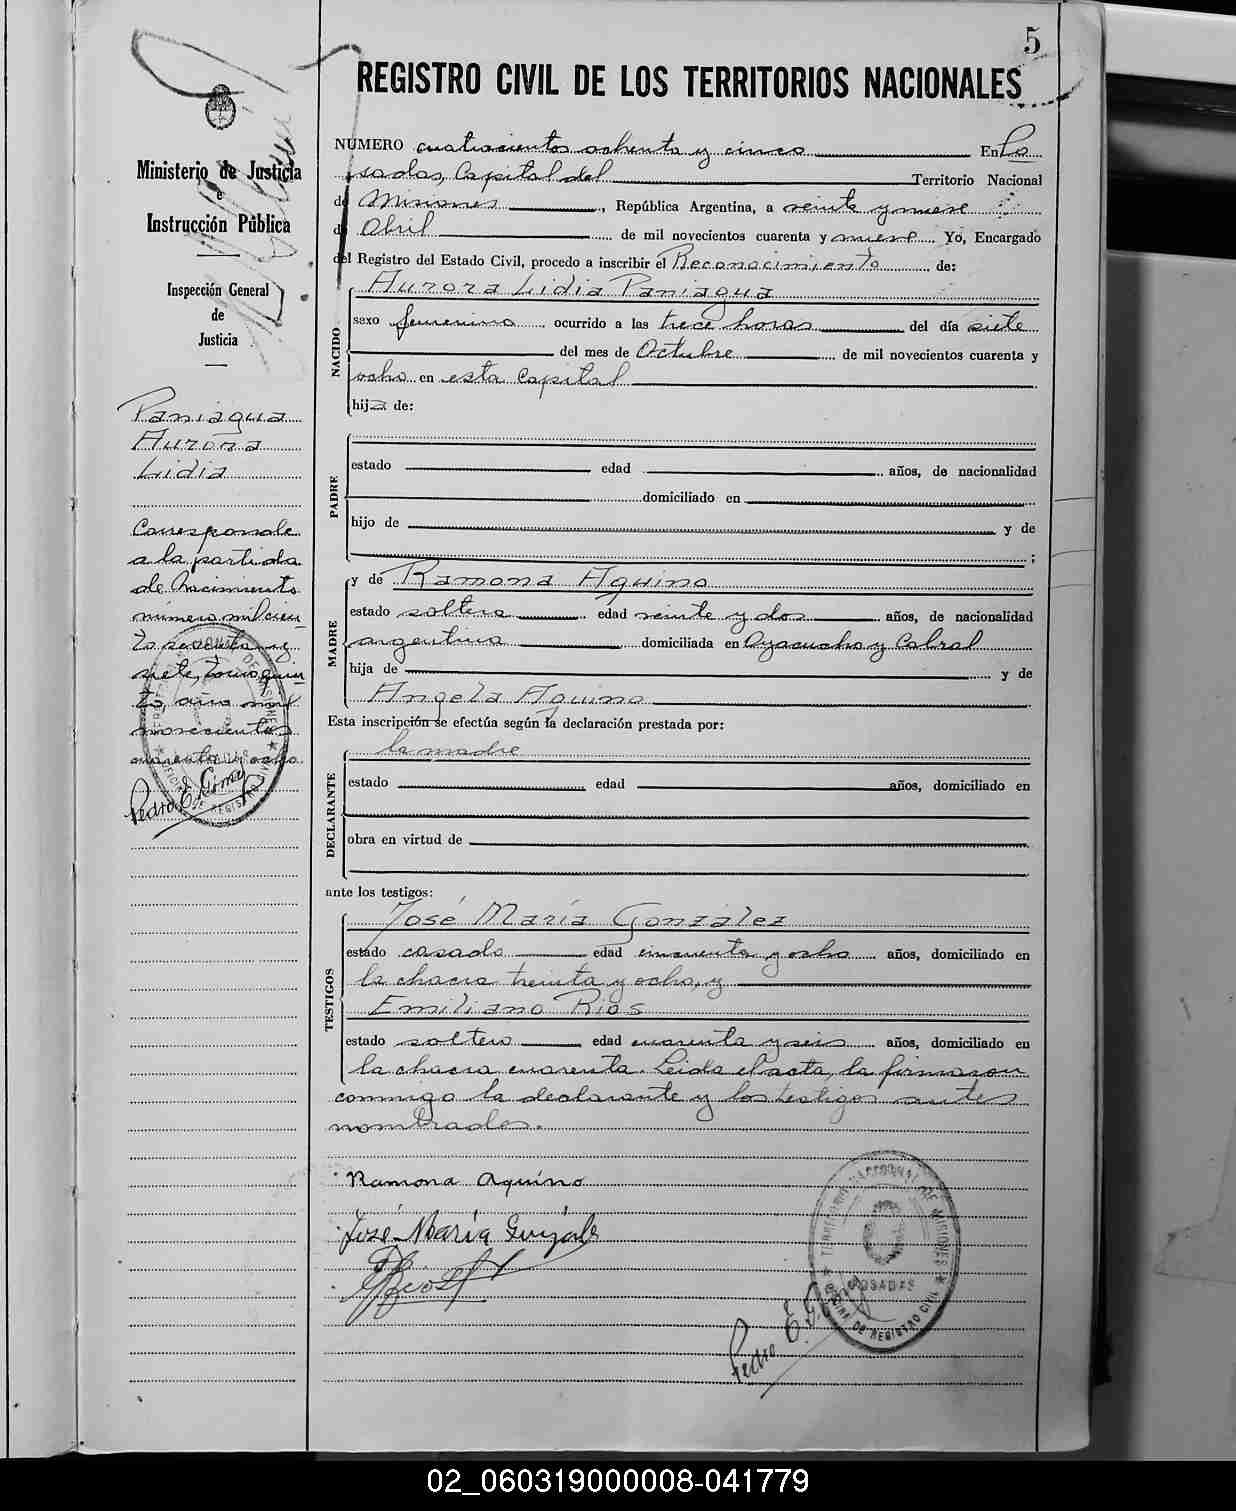 5
REGISTRO CIVIL DE LOS TERRITORIOS NACIONALES
Ministerio de Justicia
e
Instrucción Pública
Inspección General
de
Justicia
Paniagua
Aurora
Lidia
Corresponde
a la partida
de Nacimiento
número mil cien-
to sesenta y
siete, tomo quin-
to, año mil
novecientos
cuarenta y ocho.
Pedro E. Gómez
NUMERO cuatrocientos ochenta y cinco En Po
sadas, Capital del Territorio Nacional
de Misiones, República Argentina, a veinte y nueve
de Abril de mil novecientos cuarenta y nueve Yo, Encargado
del Registro del Estado Civil, procedo a inscribir el Reconocimiento de:
NACIDO
Aurora Lidia Paniagua
sexo femenino ocurrido a las trece horas del día siete
del mes de Octubre de mil novecientos cuarenta y
ocho en esta Capital
hija de:
PADRE
estado edad años, de nacionalidad
domiciliado en
hijo de y de
;
MADRE
y de Ramona Aquino
estado soltera edad veinte y dos años, de nacionalidad
argentina domiciliada en Ayacucho y Cabral
hija de y de
Angela Aquino
Esta inscripción se efectúa según la declaración prestada por:
DECLARANTE
la madre
estado edad años, domiciliado en
obra en virtud de
ante los testigos:
TESTIGOS
José María González
estado casado edad cincuenta y ocho años, domiciliado en
la chacra treinta y ocho, y
Emiliano Rios
estado soltero edad cuarenta y seis años, domiciliado en
la chacra cuarenta. Leida el acta, la firmaron
conmigo la declarante y los testigos antes
nombrados.
Ramona Aquino
José María Gonzalez
ERios
TERRITORIO NACIONAL DE MISIONES
POSADAS
OFICINA DE REGISTRO CIVIL
Pedro E. Gómez
02_060319000008-041779